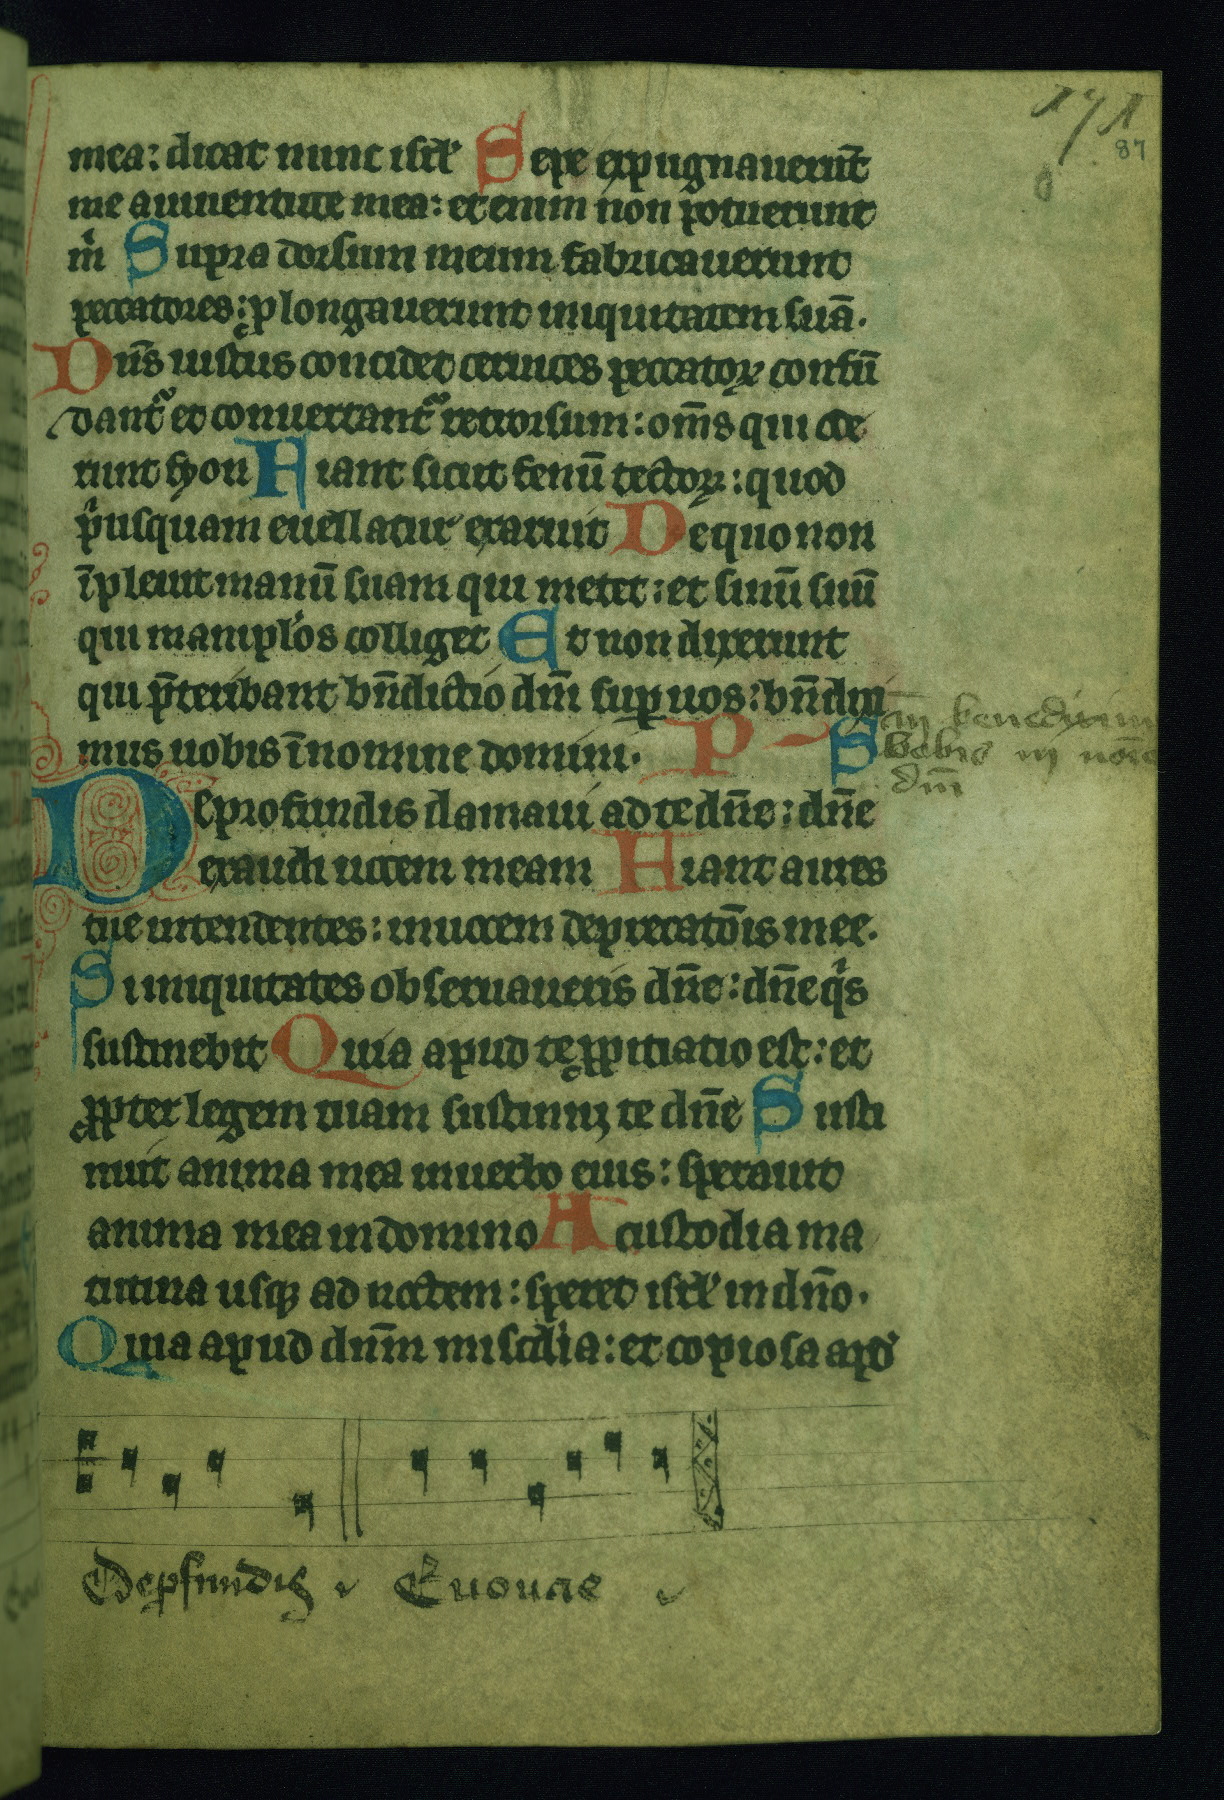 171
87
mea: dicat nunc isrl' Sepe expugnauerūt
me aiuuentute mea: etenim non potuerunt
m̍ Supra dorsum meum fabricauerunt
peccatores: ꝓlongauerunt iniquitatem suā.
Dn̄s iustus concidet ceruices peccatoꝝ confū
dant᷑ et conuertant᷑ retrorsum: om̄s qui ode
runt syon Fiant sicut fenū tectoꝝ: quod
p̍usquam euellatur exaruit De quo non
īpleuit manū suam qui metet: et sinū suū
qui manipl'os colliget Et non dixerunt
qui p̄teribant bn̄dictio dn̄i suꝑ uos: bn̄dixi
in benediximus
mus uobis ī nomine domini. P S
vobis in noīe
dn̄i
De profundis clamaui ad te dn̄e: dn̄e
exaudi uocem meam Fiant aures
tue intendentes: in uocem deprecatōis mee.
Si iniquitates obseruaueris dn̄e: dn̄e q̍s
sustinebit Quia apud te ꝓpitiatio est: et
ꝓpter legem tuam sustinuꝫ te dn̄e Susti
nuit anima mea in uerbo eius: sperauit
anima mea in domino A custodia ma
tutina usqꝫ ad noctem: speret isrl' in dn̄o.
Quia apud dn̄m misc̄dia: et copiosa apd'
Deꝓfundis Euouae